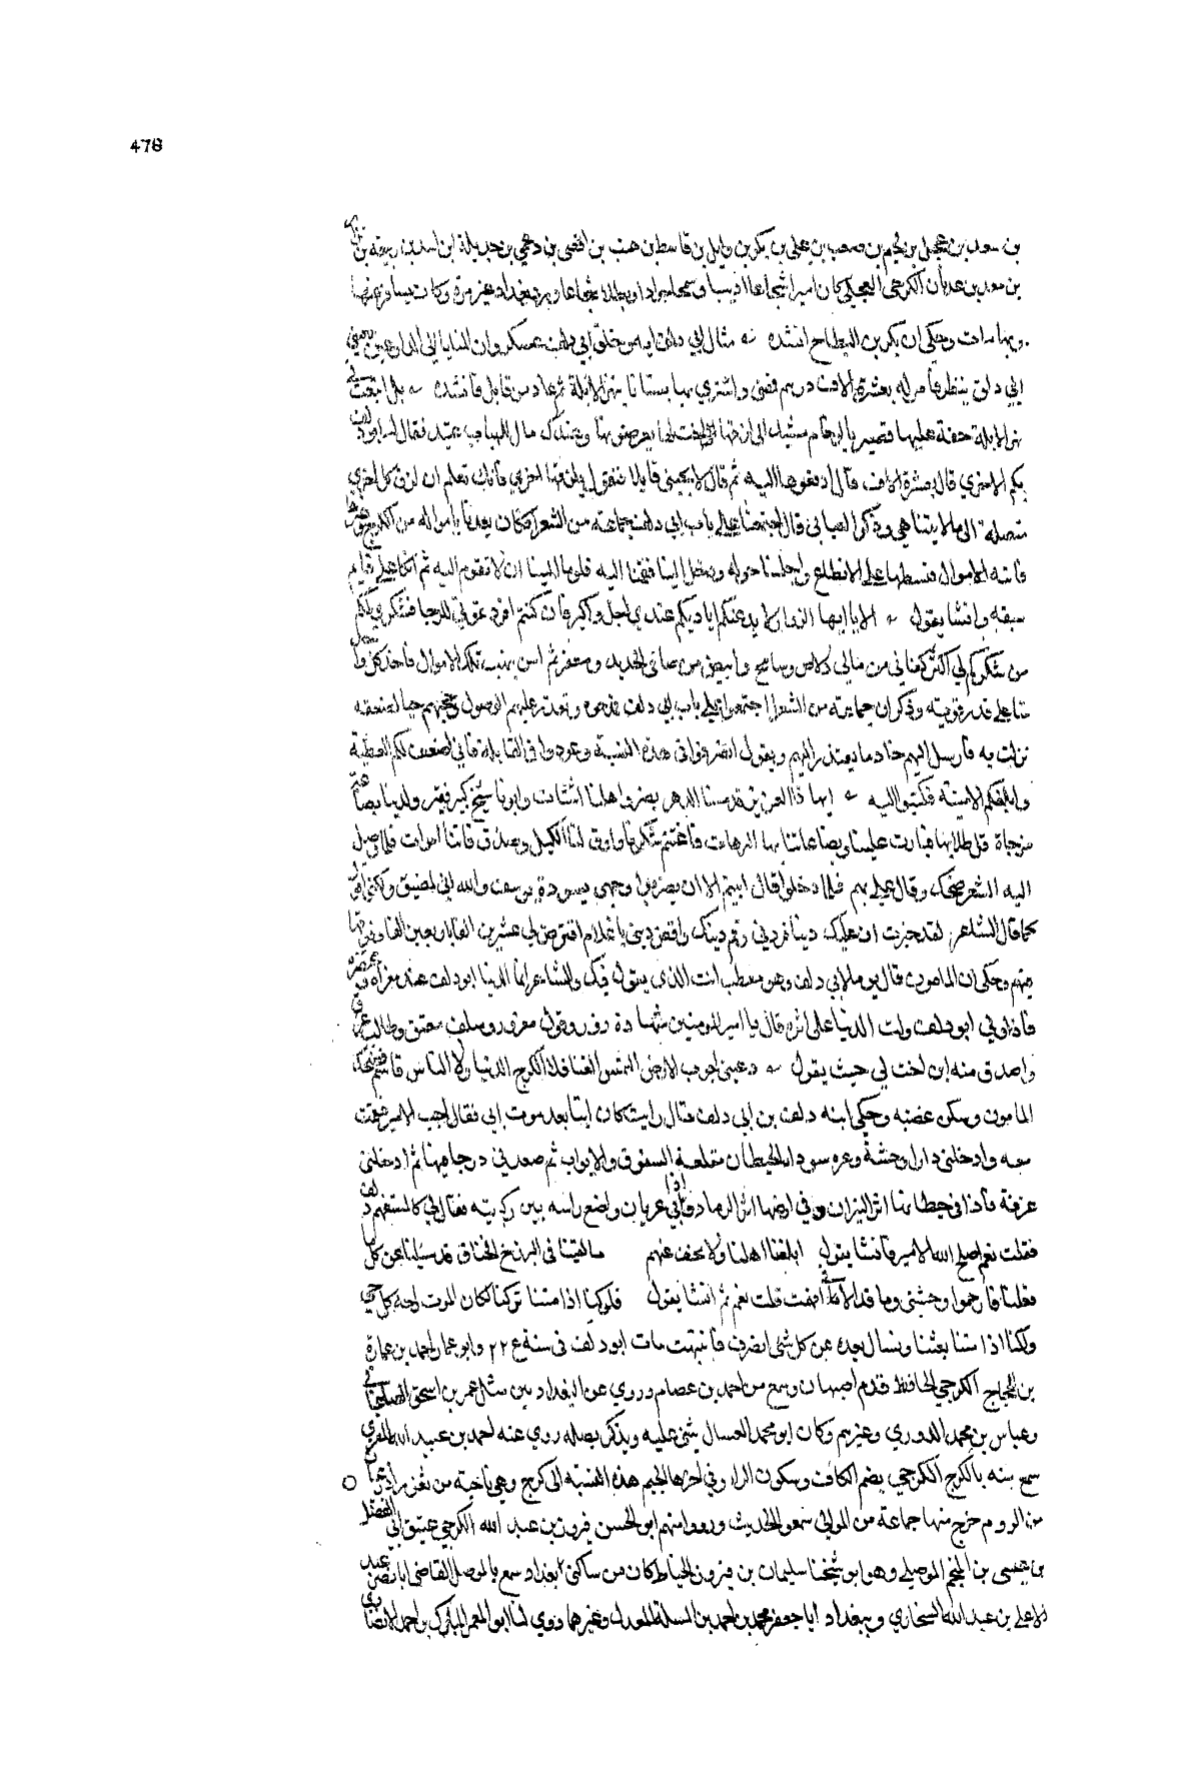 478
بن سعد بن عجل بن لجيم بن صعب بن علي بن بكر بن وايل بن قاسط بن هنب بن افصى بن دعمي بن جديلة ابن اسد بن ربيعه بن
بن معد بن عدنان الكرجي العجلي كان اميرا شجاعا اديبا سمحا جوادا وبطلا شجاعا ورد بغداد غير مرة وكان يسافر عنها
وبها مات وحكي ان بكر بن النطاح انشده مثال ابي دلف امة من خلق ابي دلف عسكر وان المنايا الى الدارعين
ابي دلف ينظر فامر له بعشرة الاف درهم فمضى واشترى بها بستانا بنهر الابلة ثم عاد من قابل فانشده بك ابتعت في
نهر الابلة عليها قصير بالرخام مشيد الى اختها يعرضونها وعندك مال للهبات عتيد فقال له ابو دلف
بكم الاخرى قال بعشرة الاف قال ادفعوها اليه ثم قال لا تجيني قابلا فتقول بلزقها اخرى فانك تعلم ان لزق كل اخرى
متصله الى ما لا يتناهي وذكر العتابي قال اجتمعنا على باب ابي دلف جماعة من الشعرا فكان يعدنا بامواله من الكرج
فاتته الاموال فبسطها على الانطاع واجلسنا حوله ودخل الينا فقمنا اليه فاوما الينا ان لا نقوم اليه ثم اتكا على قايم
سيفه وانشا يقول الا ايها الزوار لا يد عندكم اياديكم عندي اجل واكبر فان كنتم افردتموني للرجا فشكري لكم
من شكركم لي اكثر كفاني من مالي دلاص وسابح وابيض من صافي الحديد ومغفر ثم امر بنهب تلك الاموال فاخذ كل واحد
منا على قدر قوته وذكر ان جماعة من الشعرا اجتمعوا على باب ابي دلف فمدحوه وتعذر عليهم الوصول وحجبهم حيا لضيقه
نزلت به فارسل اليهم خادما يعتذر اليهم ويقول انصرفوا في هذه السنة وعودوا في القابلة فاني اضعف لكم العطية
وابلغكم الامنية فكتبوا اليه ايها ذا العزيز قد مسنا الدهر بضر واهلنا اشتات وابونا شيخ كبير فقير ولدينا بضاعة
مزجاة قل طلابها فبارت علينا وبضاعاتنا بها الترهات فاغتنم شكرنا واوف لنا الكيل وصدق فاننا اموات فلما وصل
اليه الشعر ضحك وقال علي بهم فلما دخلوا قال ابيتم الا ان تضربوا وجهي بسورة يوسف والله اني لمضيق ولكني اقول
كما قال الشاعر لقد خبرت ان عليك دينا فزد في رقم دينك واقض ديني يا غلام اقترض لي عشرين الفا باربعين الفا وفرقها
فيهم وحكي ان المامون قال يوما لابي دلف وهو مقطب انت الذي يقول فيك الشاعر انما الدنيا ابو دلف عند مغزاه ومحتضره
فاذا ولي ابو دلف ولت الدنيا على اثره قال يا امير المومنين شهادة زور وقول مغرور وملق معتف وطالب عرف
واصدق منه ابن اخت لي حيث يقول دعيني اجوب الارض التمس الغنا فلا الكرج الدنيا ولا الناس قاسم فضحك
المامون وسكن غضبه وحكي ابنه دلف بن ابي دلف قال رايت كان آتيا بعد موت ابي فقال اجب الامير فقمت
معه وادخلني دارا وحشة وعره سودا الحيطان مقلعة السقوف والابواب ثم صعدني درجا منها ثم ادخلني
غرفة فاذا في حيطانها اثر النيران وفي ارضها اثر الرماد واذا ابي عريان واضع راسه بين ركبتيه فقال لي كالمستفهم دلف
فقلت نعم اصلح الله الامير فانشا يقول ابلغنا اهلنا ولا تخف عنهم ما لقينا في البرزخ الخناق قد سيلنا عن كل ما
فعلنا فارحموا وحشتي وما قد الاقي افهمت قلت نعم ثم انشا يقول فلو كنا اذا متنا تركنا لكان الموت راحة كل حي
ولكنا اذا متنا بعثنا ونسال بعده عن كل شي انصرف فانتبهت مات ابو دلف في سنة ٢٢٤ وابو عمار احمد بن عمارة
بن الحجاج الكرجي الحافظ قدم اصبهان وسمع من احمد بن عصام وروي عن البغداديين مثل عمر بن اسحق الصنعاني
وعباس بن محمد الدوري وغيرهم وكان ابو محمد العسال يثني عليه ويذكر بصله روي عنه احمد بن عبيد الله المقري
سمع منه بالكرج الكرجي بضم الكاف وسكون الراء وفي اخرها الجيم هذه النسبة الى كرج وهي ناحية من ثغور
من الروم خرج منها جماعة من الموالي سمعوا الحديث ورووا منهم ابو الحسن فيروز بن عبد الله الكرجي عتيق ابي الفضل
بن عيسى بن المنجم الموصلي وهو ابو شيخنا سليمان بن فيروز الخياط كان من ساكني بغداد سمع بالموصل القاضي ابا نصر عبيد
الاعلى بن عبد الله السنجاري وببغداد ابا جعفر محمد بن احمد بن المسلمة المعدل وغيرهما روي لنا ابو المعمر المبارك بن احمد الانصاري